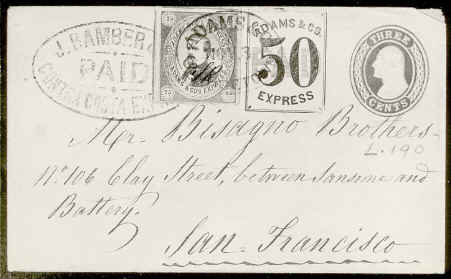 J. BAMBER
PAID
CONTRA COSTA EX
ADAMS
ADAMS & CO.
.50
EXPRESS
THREE
CENTS
Mr. Bisagno Brothers
L.190
No. 106 Clay Street, between Sansome and
Battery.
San-Francisco